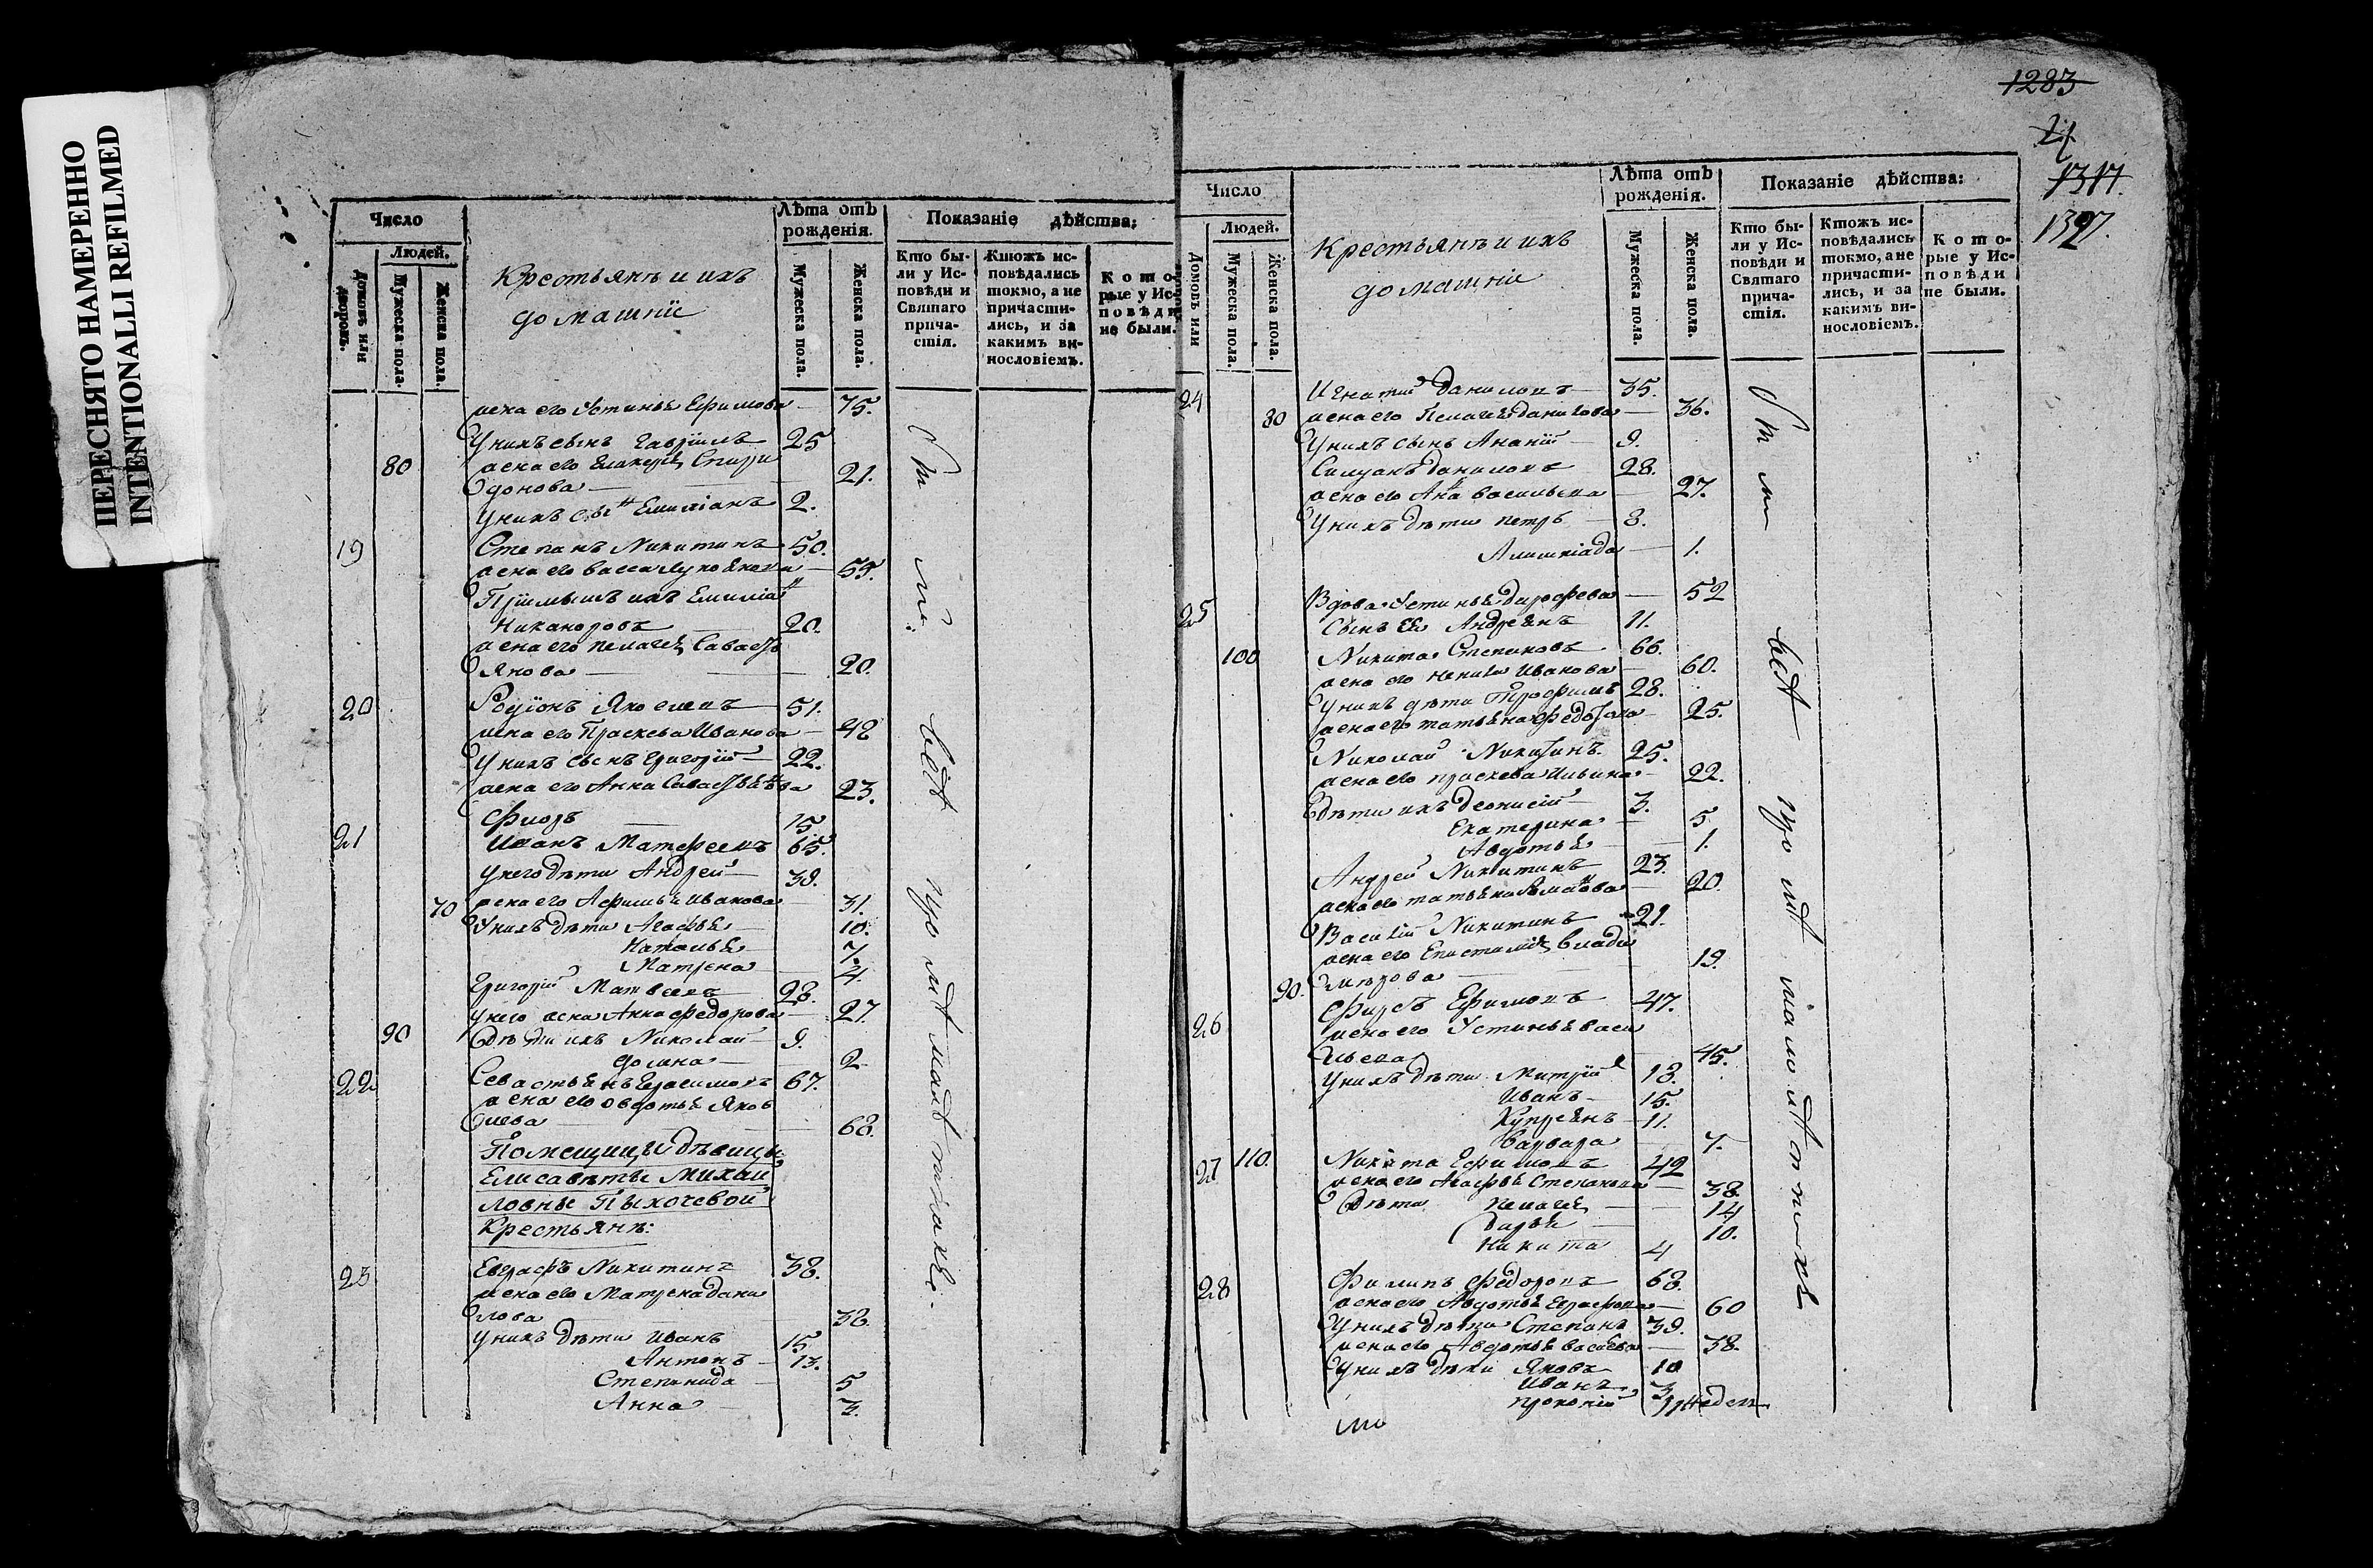 ПЕРЕСНЯТО НАМЕРЕННО
INTENTIONALLI REFILMED
Число
Людей.
Домовъ или дворовъ.
Мужеска пола.
Женска пола.
Крестьянъ и ихъ
домашніе
Лѣта отъ
рожденія.
Мужеска пола.
Женска пола.
Показаніе дѣйства:
Кто бы-
ли у Ис-
повѣди и
Святаго
прича-
стія.
Ктожъ ис-
повѣдались
токмо, а не
причасти-
лись, и за
какимъ ви-
нословіемъ.
К о т о-
рые у Ис-
п о в ѣ д и
не были.
жена его Устинья Ефимова 75.
У нихъ сынъ Гаврiилъ 25
80 жена его Гликерія Спири
донова 21.
У нихъ сынъ Емиліанъ 2.
19 Степанъ Никитинъ 50.
жена его Васса Лукоянова 55.
Пріимышъ ихъ Емиліанъ
Никаноровъ 20.
жена его Пелагея Савасть
янова 20.
20 Родіонъ Яковлевъ 51.
жена его Праскева Иванова 48
У нихъ сынъ Григорій 22.
жена его Анна Савастьянова 23.
Фирсъ 15
21 Иванъ Матфеевъ 65.
У него дѣти Андрей 38.
70 жена его Афимья Иванова 31.
У нихъ дѣти Агафья 10.
Наталья 7.
Матрена 4.
Григорій Матвеевъ 28.
У него жена Анна Федорова 27.
90 Дѣти ихъ Николай 9.
Домна 2
22 Севастьянъ Герасимовъ 67.
жена его Овдотья Яков
лева 68.
Помещицы дѣвицы
Елисаветы Михаи
ловны Пыхочевой
Крестьянъ:
23 Евграфъ Никитинъ 38.
жена его Матрена Дани
лова 38.
У нихъ дѣти Иванъ 15
Антонъ 13.
Степанида 5
Анна 3.
1283
24
1317.
1397.
Число
Людей.
Домовъ или
Мужеска пола.
Женска пола.
Крестьянъ и ихъ
домашніе
Лѣта отъ
рожденія.
Мужеска пола.
Женска пола.
Показаніе дѣйства:
Кто бы-
ли у Ис-
повѣди и
Святаго
прича-
стія.
Ктожъ ис-
повѣдались
токмо, а не
причасти-
лись, и за
какимъ ви-
нословіемъ.
К о т о-
рые у Ис-
п о в ѣ д и
не были.
24 Игнатій Даниловъ 35.
80 жена его Пелагея Данилова 36.
У нихъ сынъ Ананій 9.
Силуанъ Даниловъ 28.
жена его Анна Васильева 27.
У нихъ дѣти Петръ 8.
Алимпіада 1.
25 Вдова Устинья Дорофева 52
Сынъ ея Андреянъ 11.
100 Никита Степановъ 66.
жена его Ненила Иванова 60.
У нихъ дѣти Трофимъ 28.
жена его Татьяна Федотова 25.
Николай Никитинъ 25.
жена его Праскева Ильина 22.
Дѣти ихъ Деонисій 3.
Екатерина 5
Авдотья 1.
Андрей Никитинъ 23.
жена его Татьяна Романова 20.
Василій Никитинъ 21.
жена его Епистимія Влади
90. мирова 19.
26 Фирсъ Ефимовъ 47.
жена его Устинья Васи
льева 45.
У нихъ дѣти Митрій 18.
Иванъ 15.
Купреянъ 11.
Варвара 7.
27 110. Никита Ефимовъ 42
жена его Агафья Степанова 38.
Дѣти Пелагея 14
Дарья 10.
Никита 4
28 Филипъ Федоровъ 68.
жена его Авдотья Евграфова 60
У нихъ дѣти Степанъ 39.
жена его Авдотья Васильева 38.
У нихъ дѣти Яковъ 10
Иванъ 3
Прокопій 11 недель